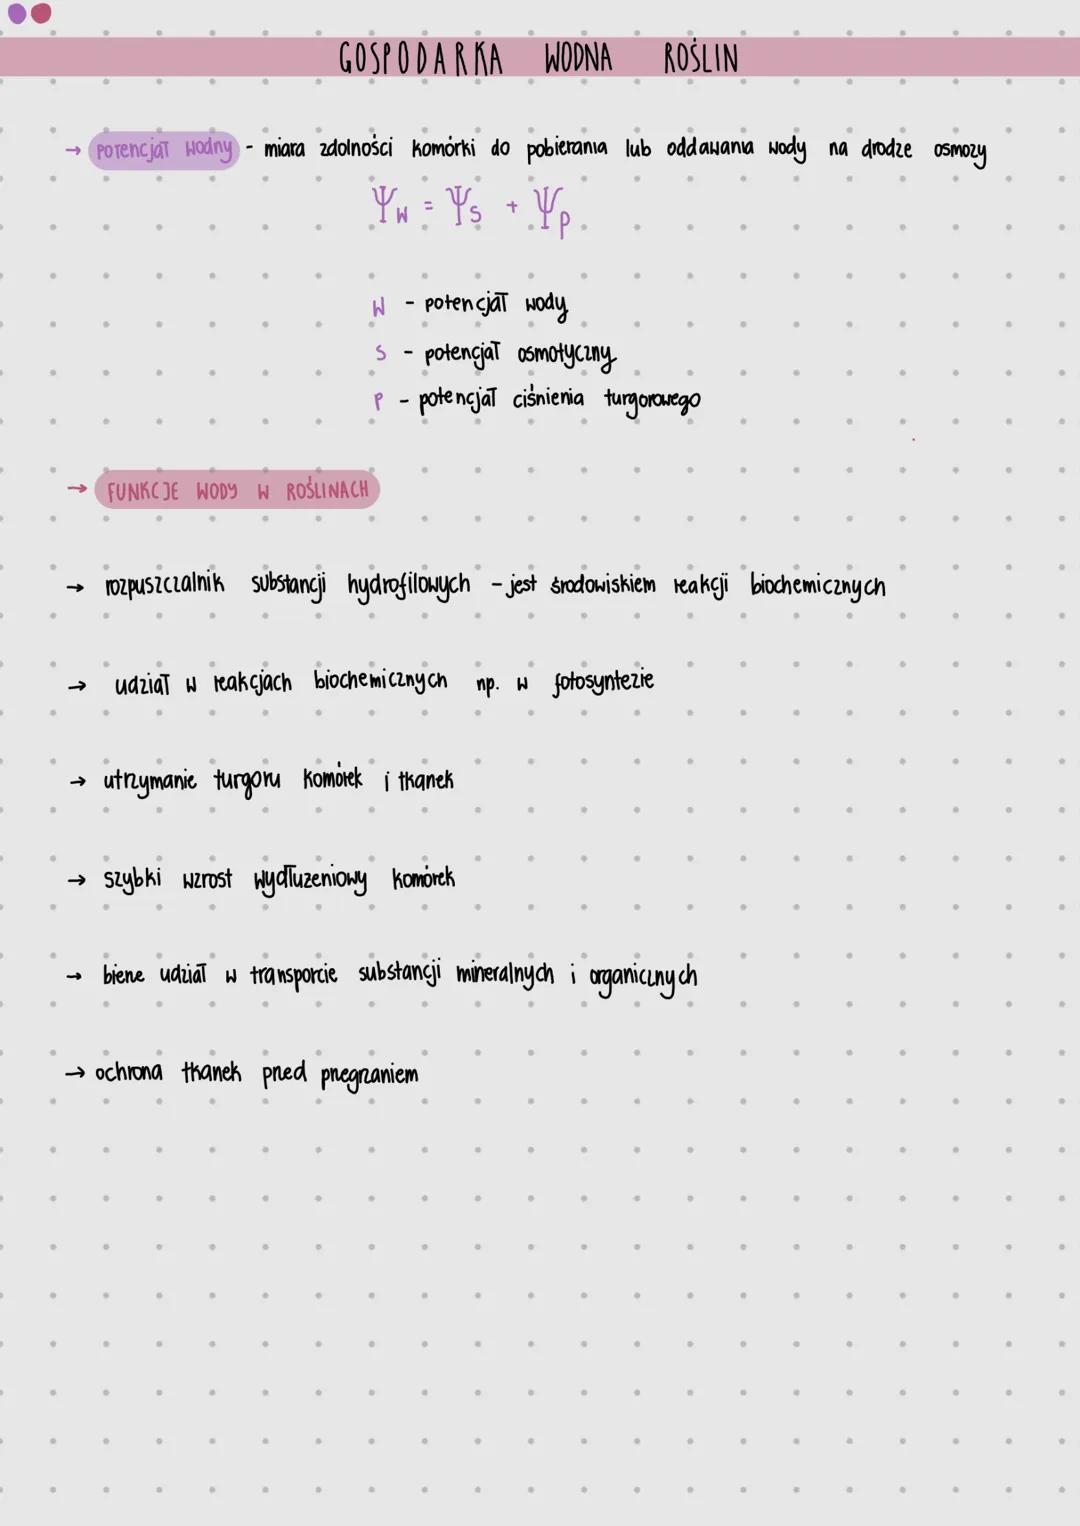 GOSPODARKA WODNA ROŚLIN
→ potencjał wodny - miara zdolności komórki do pobierania lub oddawania wody na drodze osmozy
Ψw = Ψs + Ψp
W - potencjał wody
S - potencjał osmotyczny
P - potencjał ciśnienia turgorowego
→ FUNKCJE WODY W ROŚLINACH
→ rozpuszczalnik substancji hydrofilowych - jest środowiskiem reakcji biochemicznych
→ udział w reakcjach biochemicznych np. w fotosyntezie
→ utrzymanie turgoru komórek i tkanek
→ szybki wzrost wydłużeniowy komórek
→ bierze udział w transporcie substancji mineralnych i organicznych
→ ochrona tkanek przed przegrzaniem